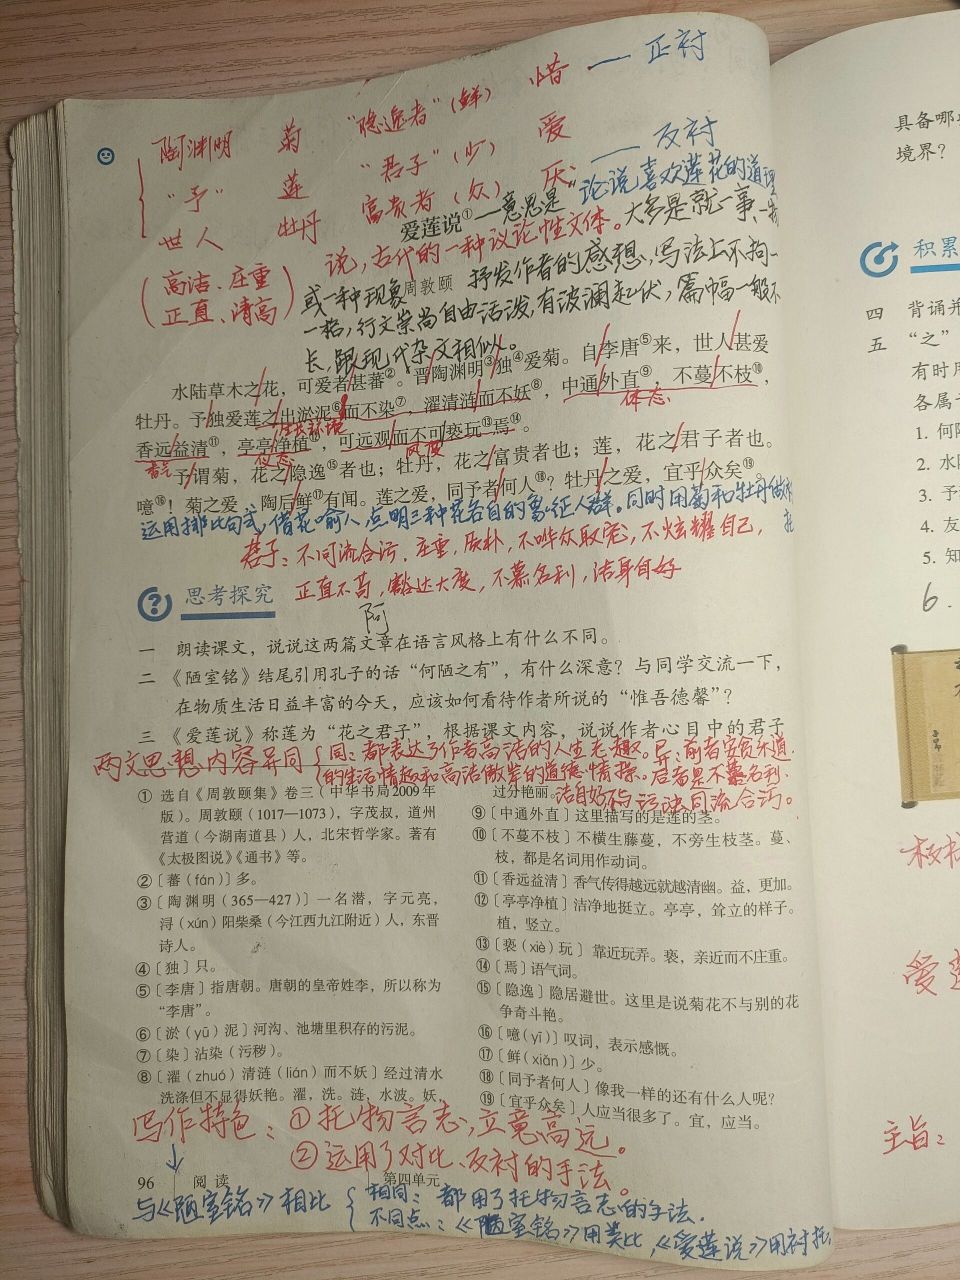 陶渊明 菊 “隐逸者”(鲜) 惜 — 正衬
“予” 莲 “君子”(少) 爱
世人 牡丹 富贵者(众) 厌 — 反衬
(高洁、庄重
正直、清高)
爱莲说① —意思是“论说喜欢莲花的道理
说,古代的一种议论性文体。大多是就一事、一物
或一种现象 抒发作者的感想,写法上不拘一
周敦颐
格,行文崇尚自由活泼,有波澜起伏,篇幅一般不
长,跟现代杂文相似。
水陆草木之花,可爱者甚蕃②。晋陶渊明③独④爱菊。自李唐⑤来,世人甚爱
牡丹。予独爱莲之出淤泥⑥而不染⑦,濯清涟而不妖⑧,中通外直⑨,不蔓不枝⑩,
生长环境 体态
香远益清⑪,亭亭净植⑫,可远观而不可亵玩⑬焉⑭。
香气 仪态 风度
予谓菊,花之隐逸⑮者也;牡丹,花之富贵者也;莲,花之君子者也。
噫⑯!菊之爱,陶后鲜⑰有闻。莲之爱,同予者何人⑱?牡丹之爱,宜乎众矣⑲。
运用排比句式,借花喻人,点明三种花各自的象征人群。同时用菊和牡丹做衬
托
君子:不同流合污,庄重,质朴,不哗众取宠,不炫耀自己,
正直不苟,豁达大度,不慕名利,洁身自好
思考探究
阿
一 朗读课文,说说这两篇文章在语言风格上有什么不同。
二 《陋室铭》结尾引用孔子的话“何陋之有”,有什么深意?与同学交流一下,
在物质生活日益丰富的今天,应该如何看待作者所说的“惟吾德馨”?
三 《爱莲说》称莲为“花之君子”,根据课文内容,说说作者心目中的君子
两文思想内容异同 {同:都表达了作者高洁的人生志趣。异:前者安贫乐道
的生活情趣和高洁傲岸的道德情操。后者是不慕名利、
洁身自好不与污浊同流合污。
① 选自《周敦颐集》卷三(中华书局2009年
版)。周敦颐(1017—1073),字茂叔,道州
营道(今湖南道县)人,北宋哲学家。著有
《太极图说》《通书》等。
②〔蕃(fán)〕多。
③〔陶渊明(365—427)〕一名潜,字元亮,
浔(xún)阳柴桑(今江西九江附近)人,东晋
诗人。
④〔独〕只。
⑤〔李唐〕指唐朝。唐朝的皇帝姓李,所以称为
“李唐”。
⑥〔淤(yū)泥〕河沟、池塘里积存的污泥。
⑦〔染〕沾染(污秽)。
⑧〔濯(zhuó)清涟(lián)而不妖〕经过清水
洗涤但不显得妖艳。濯,洗。涟,水波。妖,
过分艳丽。
⑨〔中通外直〕这里描写的是莲的茎。
⑩〔不蔓不枝〕不横生藤蔓,不旁生枝茎。蔓、
枝,都是名词用作动词。
⑪〔香远益清〕香气传得越远就越清幽。益,更加。
⑫〔亭亭净植〕洁净地挺立。亭亭,耸立的样子。
植,竖立。
⑬〔亵(xiè)玩〕靠近玩弄。亵,亲近而不庄重。
⑭〔焉〕语气词。
⑮〔隐逸〕隐居避世。这里是说菊花不与别的花
争奇斗艳。
⑯〔噫(yī)〕叹词,表示感慨。
⑰〔鲜(xiǎn)〕少。
⑱〔同予者何人〕像我一样的还有什么人呢?
⑲〔宜乎众矣〕人应当很多了。宜,应当。
写作特色:①托物言志,立意高远。
②运用了对比、反衬的手法。
96 阅读 第四单元
与《陋室铭》相比 {相同:都用了托物言志的手法.
不同点:《陋室铭》用类比,《爱莲说》用衬托
具备哪
境界?
积累
四 背诵并
五 “之”
有时用
各属于
1. 何陋
2. 水陆
3. 予
4. 友
5. 知
6.
爱莲
主旨: